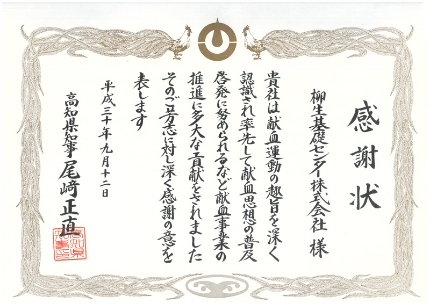 感謝状
柳生基礎センター株式会社 様
貴社は献血運動の趣旨を深く
認識され率先して献血思想の普及
啓発に努められるなど献血事業の
推進に多大な貢献をされました
そのご芳志に対し深く感謝の意を
表します
平成三十年九月十二日
高知県知事 尾﨑正直